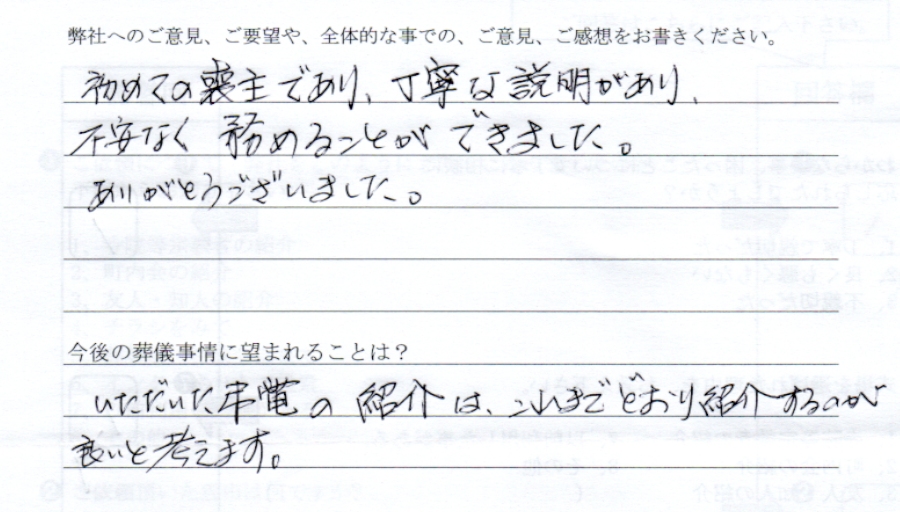 弊社へのご意見、ご要望や、全体的な事での、ご意見、ご感想をお書きください。
初めての喪主であり、丁寧な説明があり、
不安なく務めることができました。
ありがとうございました。
今後の葬儀事情に望まれることは？
いただいた弔電の紹介は、これまでどおり紹介するのが
良いと考えます。